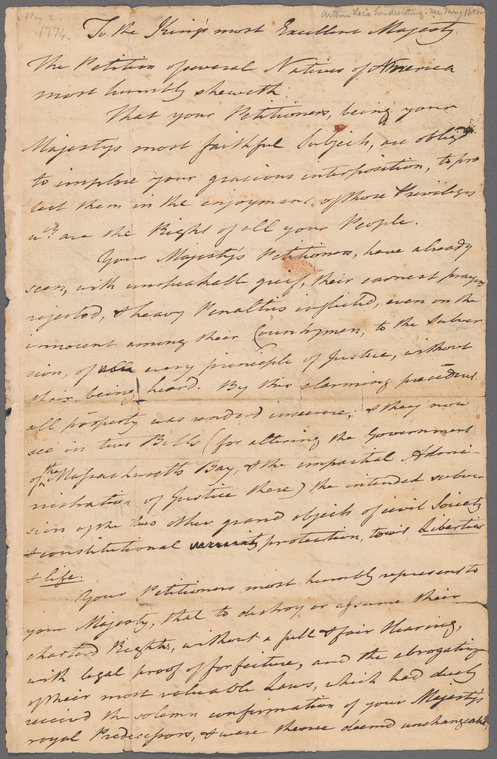 May 2
1774.
Arthur Lee's handwriting.
To the King's most Excellent Majesty
The Petition of several Natives of America
most humbly sheweth.
That your Petitioners, being your
Majestys most faithful Subjects, are oblig'd
to implore your gracious interposition, to pro
tect them in the enjoyment of those Privileges
wch are the Right of all your People.
Your Majesty's Petitioners, have already
seen, with unspeakable grief, their earnest prayers
rejected, & heavy Penalties inflicted, even on the
innocent among their Countrymen, to the subver
sion, of every principle of Justice, without
their being heard. By this alarming precedent
all property was renderd insecure; & they now
see in two Bills (for altering the Government
of the Massachusetts Bay, & the impartial Admi-
nistration of Justice there) the intended subver
sion of the two other grand objects of civil Society
& constitutional protection, towit Liberties
& life.
Your Petitioners most humbly represent to
your Majesty, that to destroy or assume their
charterd Rights, without a full & fair Hearing,
with legal proof of forfeiture; and the abrogating
of their most valuable Laws, which had duely
receivd the solemn confirmation of your Majesty's
royal Predecessors, & were thence deemd unchangeable